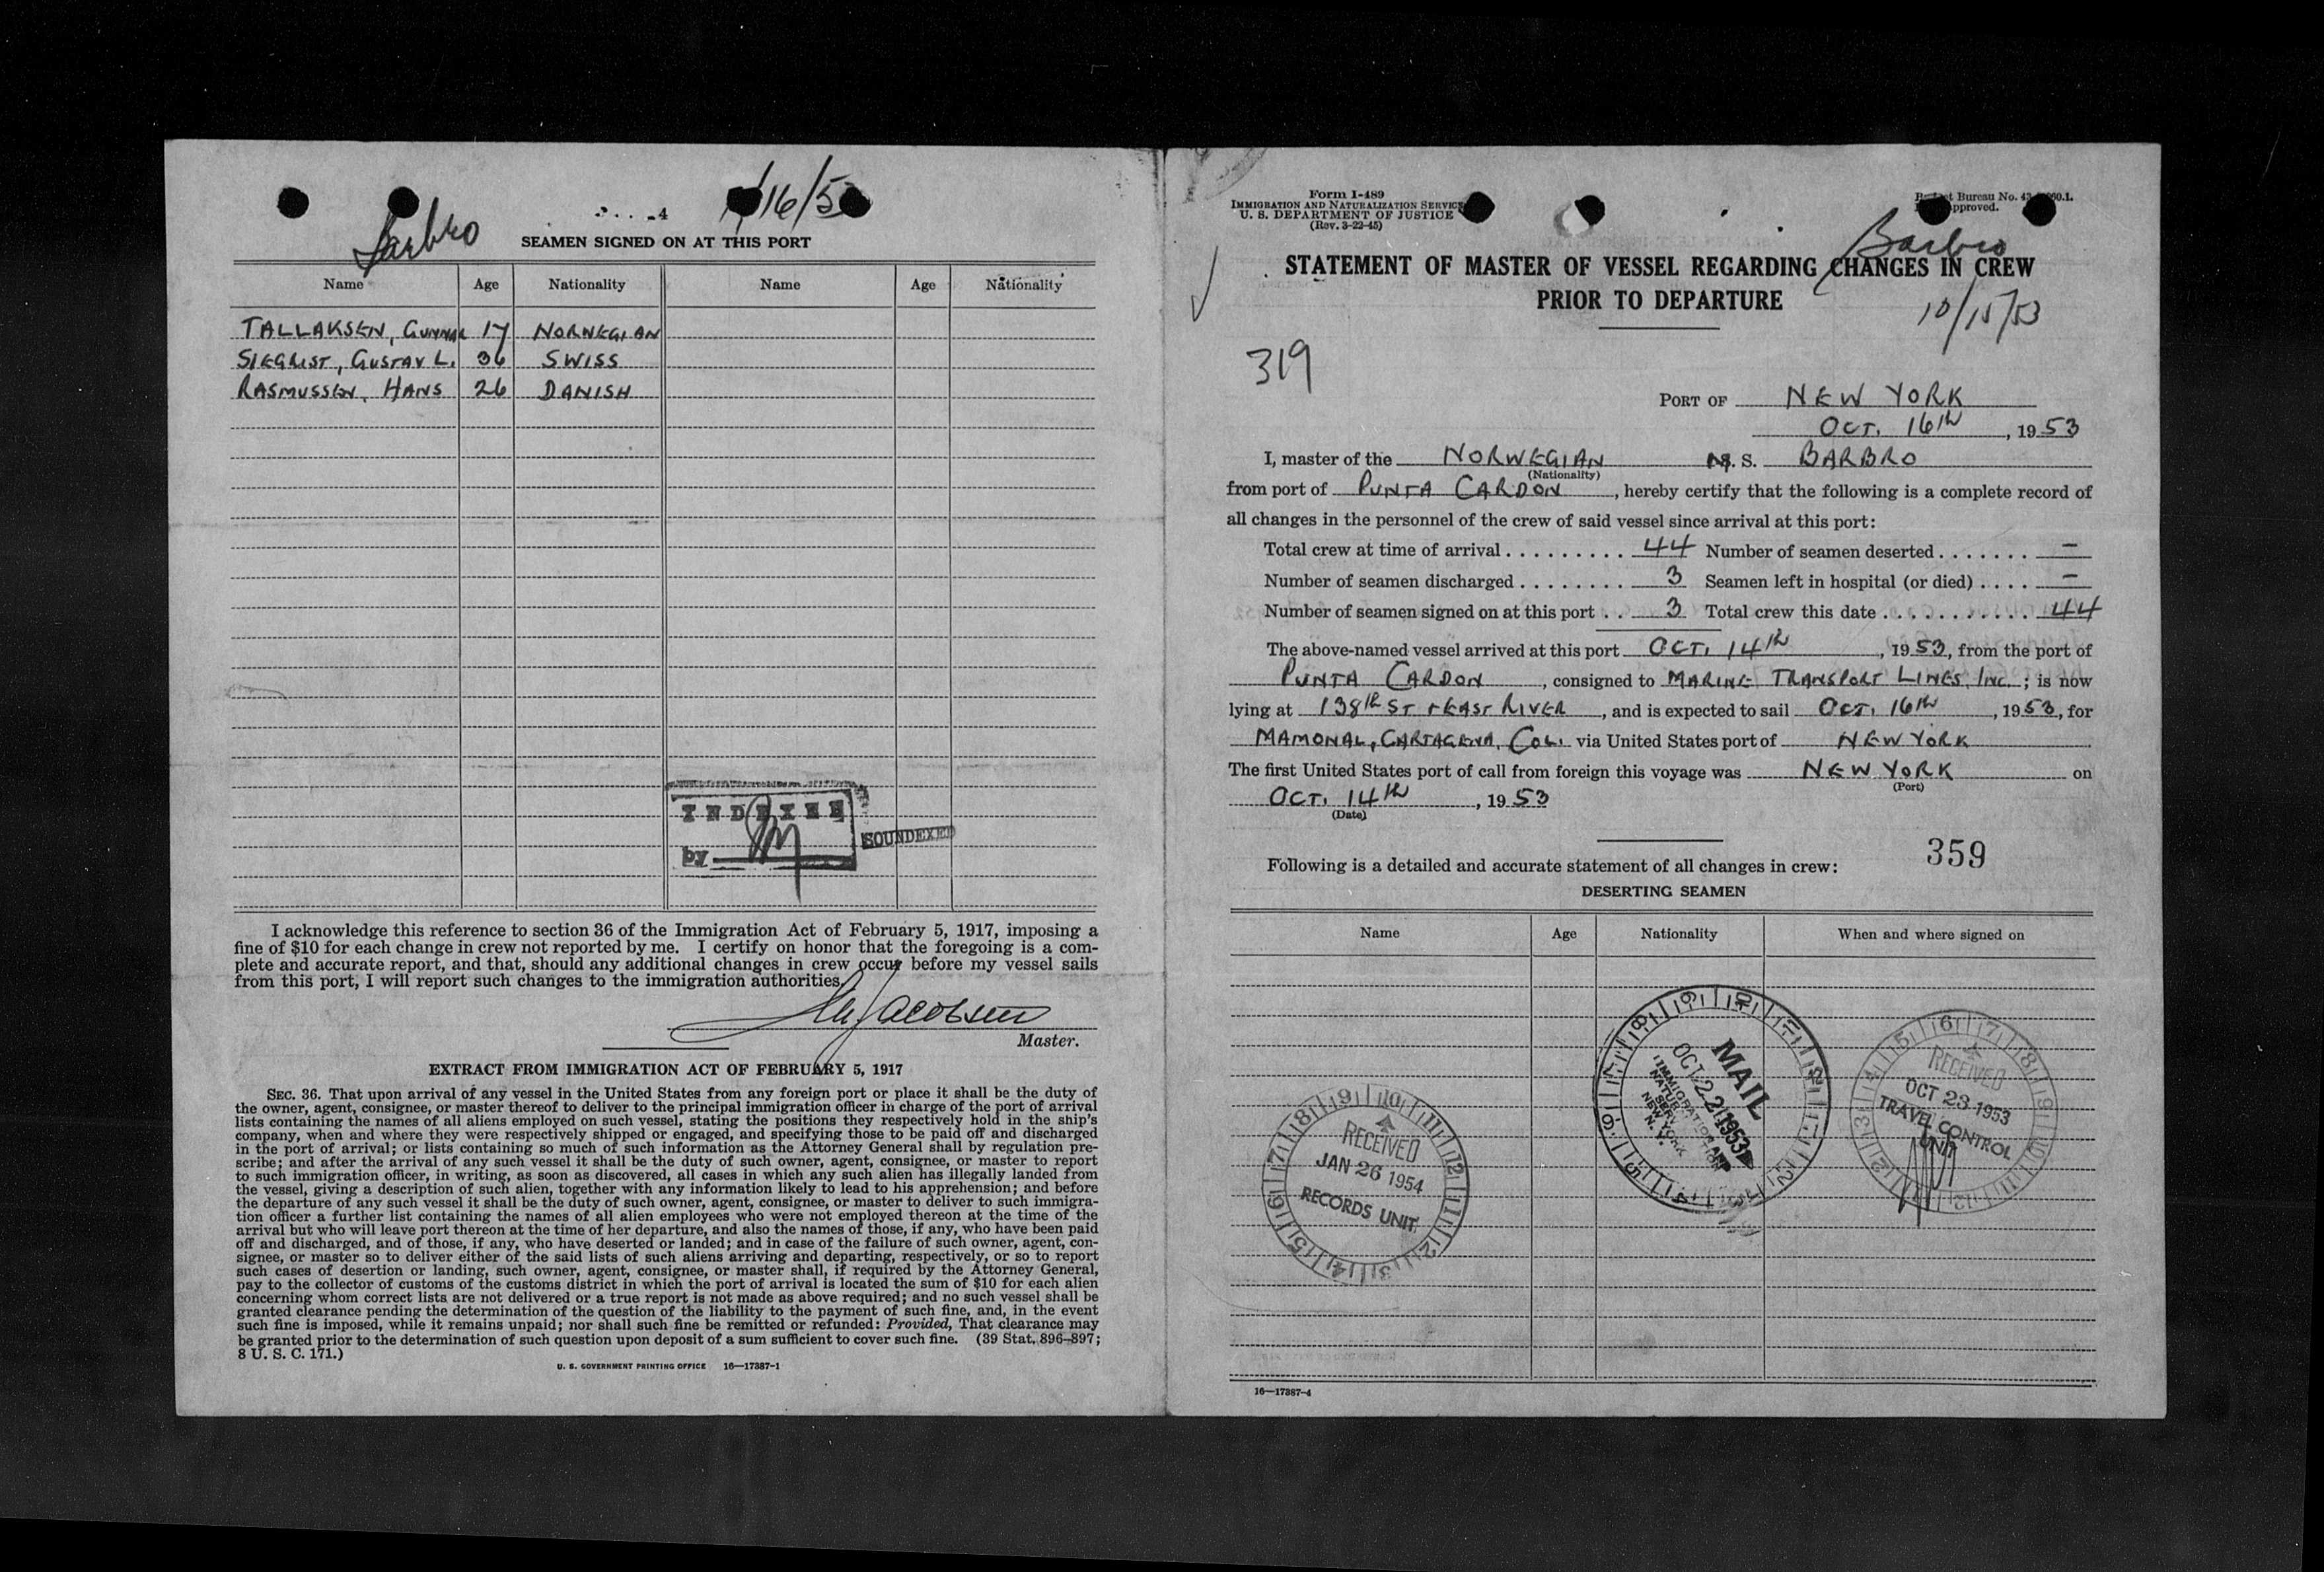 Barbro
4
16/5
SEAMEN SIGNED ON AT THIS PORT
Name Age Nationality Name Age Nationality
TALLAKSEN, GUNNAR 17 NORWEGIAN
SIEGRIST, GUSTAV L. 36 SWISS
RASMUSSEN, HANS 26 DANISH
INDEXED
by
SOUNDEXED
I acknowledge this reference to section 36 of the Immigration Act of February 5, 1917, imposing a
fine of $10 for each change in crew not reported by me. I certify on honor that the foregoing is a com-
plete and accurate report, and that, should any additional changes in crew occur before my vessel sails
from this port, I will report such changes to the immigration authorities.
Jacobsen
Master.
EXTRACT FROM IMMIGRATION ACT OF FEBRUARY 5, 1917
SEC. 36. That upon arrival of any vessel in the United States from any foreign port or place it shall be the duty of
the owner, agent, consignee, or master thereof to deliver to the principal immigration officer in charge of the port of arrival
lists containing the names of all aliens employed on such vessel, stating the positions they respectively hold in the ship's
company, when and where they were respectively shipped or engaged, and specifying those to be paid off and discharged
in the port of arrival; or lists containing so much of such information as the Attorney General shall by regulation pre-
scribe; and after the arrival of any such vessel it shall be the duty of such owner, agent, consignee, or master to report
to such immigration officer, in writing, as soon as discovered, all cases in which any such alien has illegally landed from
the vessel, giving a description of such alien, together with any information likely to lead to his apprehension; and before
the departure of any such vessel it shall be the duty of such owner, agent, consignee, or master to deliver to such immigra-
tion officer a further list containing the names of all alien employees who were not employed thereon at the time of the
arrival but who will leave port thereon at the time of her departure, and also the names of those, if any, who have been paid
off and discharged, and of those, if any, who have deserted or landed; and in case of the failure of such owner, agent, con-
signee, or master so to deliver either of the said lists of such aliens arriving and departing, respectively, or so to report
such cases of desertion or landing, such owner, agent, consignee, or master shall, if required by the Attorney General,
pay to the collector of customs of the customs district in which the port of arrival is located the sum of $10 for each alien
concerning whom correct lists are not delivered or a true report is not made as above required; and no such vessel shall be
granted clearance pending the determination of the question of the liability to the payment of such fine, and, in the event
such fine is imposed, while it remains unpaid; nor shall such fine be remitted or refunded: Provided, That clearance may
be granted prior to the determination of such question upon deposit of a sum sufficient to cover such fine. (39 Stat. 896–897;
8 U. S. C. 171.)
U. S. GOVERNMENT PRINTING OFFICE 16—17387-1
Form I-489
IMMIGRATION AND NATURALIZATION SERVICE
U. S. DEPARTMENT OF JUSTICE
(Rev. 3-22-45)
Bureau No.
pproved.
Barbro
STATEMENT OF MASTER OF VESSEL REGARDING CHANGES IN CREW
PRIOR TO DEPARTURE
10/15/53
319
PORT OF NEW YORK
OCT. 16th, 1953
I, master of the NORWEGIAN M. S. BARBRO
(Nationality)
from port of PUNTA CARDON, hereby certify that the following is a complete record of
all changes in the personnel of the crew of said vessel since arrival at this port:
Total crew at time of arrival ......... 44 Number of seamen deserted ....... –
Number of seamen discharged ........ 3 Seamen left in hospital (or died) .... –
Number of seamen signed on at this port .. 3 Total crew this date ........... 44
The above-named vessel arrived at this port OCT. 14th, 1953, from the port of
PUNTA CARDON, consigned to MARINE TRANSPORT LINES, INC.; is now
lying at 138th ST & EAST RIVER, and is expected to sail OCT. 16th, 1953, for
MAMONAL, CARTAGENA, COL. via United States port of NEW YORK
The first United States port of call from foreign this voyage was NEW YORK on
(Port)
OCT. 14th, 1953
(Date)
359
Following is a detailed and accurate statement of all changes in crew:
DESERTING SEAMEN
Name Age Nationality When and where signed on
MAIL
OCT 22 1953
IMMIGRATION AND
NATURALIZATION
SERV
NEW YORK
N. Y.
RECEIVED
OCT 23 1953
TRAVEL CONTROL
UNIT
RECEIVED
JAN 26 1954
RECORDS UNIT
16—17387-4